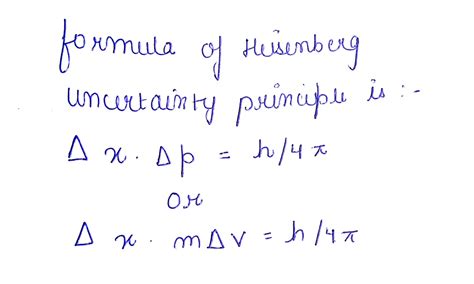 formula of Heisenberg
uncertainty principle is :-
Δ x . Δp = h/4π
or
Δ x . mΔv = h/4π